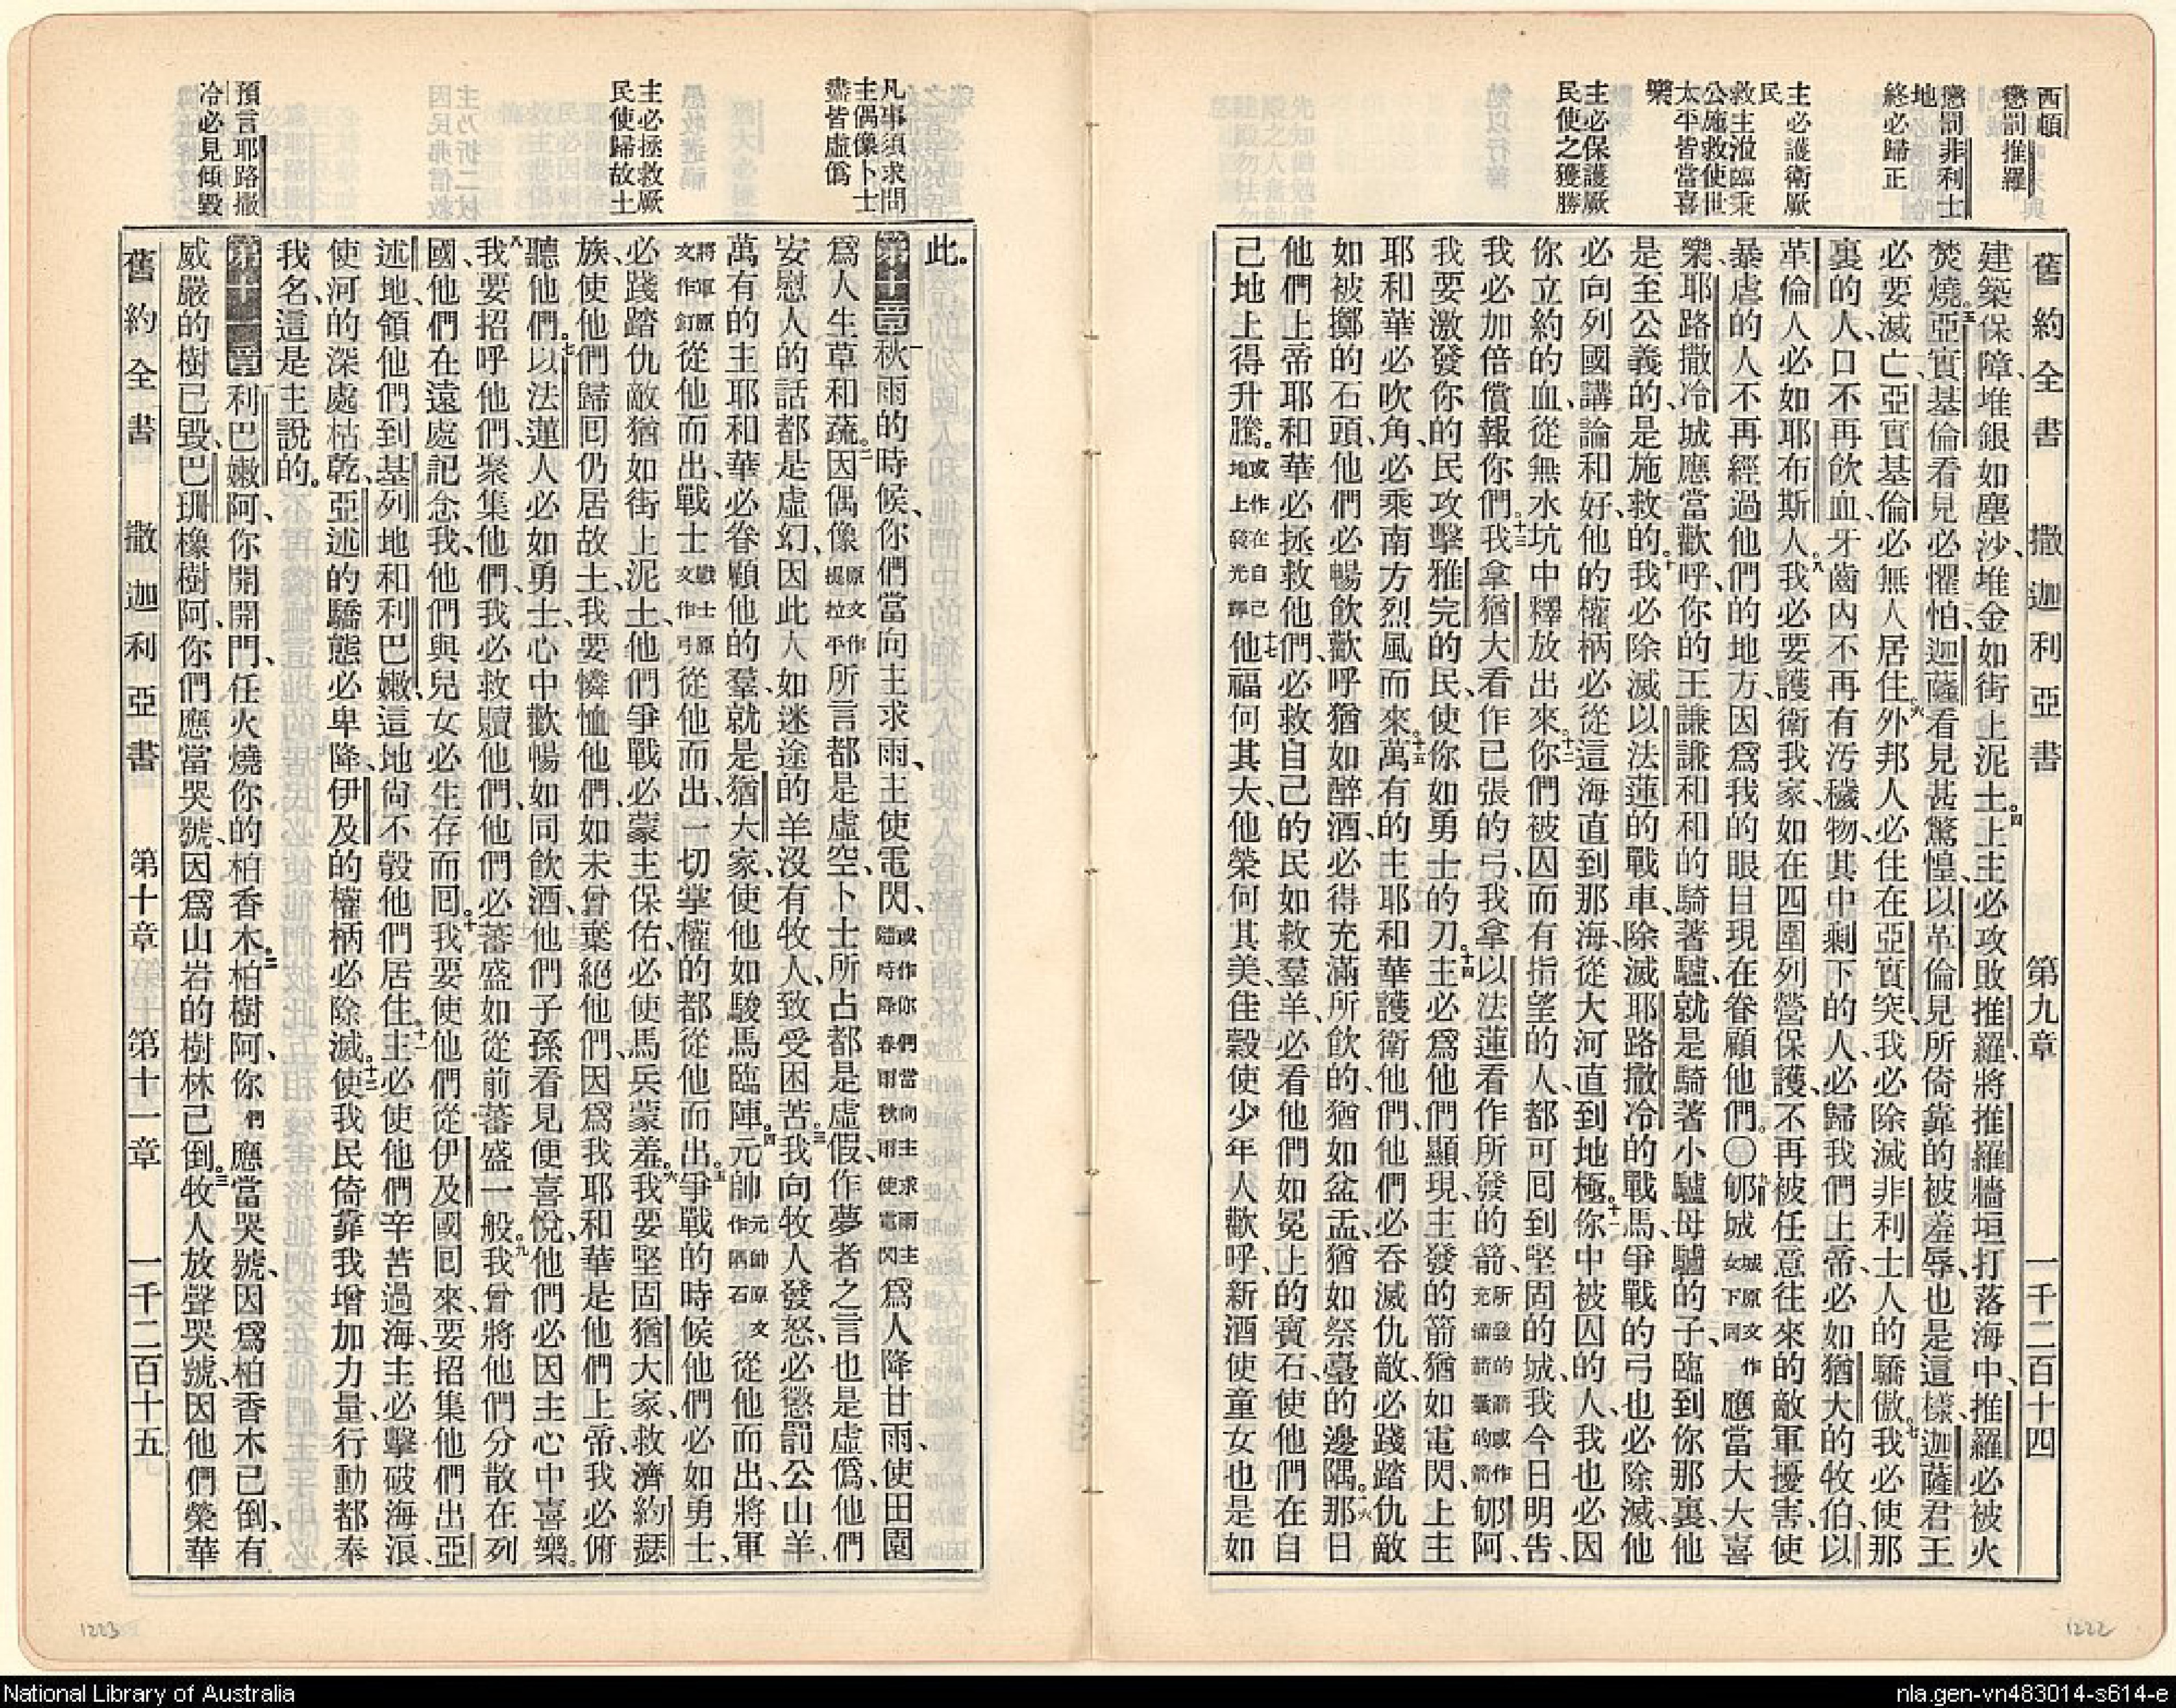 西頓
懲罰推羅
懲罰非利士
地
終必歸正
主必護衛厥
民
救主涖臨秉
公施救使世
太平皆當喜
樂
主必保護厥
民使之獲勝
舊約全書 撒迦利亞書 第九章 一千二百十四
建築保障、堆銀如塵沙、堆金如街上泥土。四主必攻敗推羅、將推羅牆垣打落海中、推羅必被火
焚燒。五亞實基倫看見必懼怕、迦薩看見甚驚惶、以革倫見所倚靠的被羞辱、也是這樣、迦薩君王
必要滅亡、亞實基倫必無人居住。六外邦人必住在亞實突、我必除滅非利士人的驕傲。七我必使那
裏的人、口不再飲血、牙齒內不再有汚穢物、其中剩下的人、必歸我們上帝、必如猶大的牧伯、以
革倫人必如耶布斯人。八我必要護衛我家、如在四圍列營保護、不再被任意往來的敵軍擾害、使
暴虐的人不再經過他們的地方、因爲我的眼目現在眷顧他們。〇九郇城城原文作女下同應當大大喜
樂、耶路撒冷城應當歡呼、你的王謙謙和和的騎著驢、就是騎著小驢母驢的子、臨到你那裏、他
是至公義的、是施救的。十我必除滅以法蓮的戰車、除滅耶路撒冷的戰馬、爭戰的弓也必除滅、他
必向列國講論和好、他的權柄必從這海直到那海、從大河直到地極。十一你中被囚的人、我也必因
你立約的血、從無水坑中釋放出來。十二你們被囚而有指望的人、都可回到堅固的城、我今日明告、
我必加倍償報你們。十三我拿猶大看作已張的弓、我拿以法蓮看作所發的箭所發的箭或作充滿箭囊的箭郇阿、
我要激發你的民、攻擊雅完的民、使你如勇士的刃。十四主必爲他們顯現、主發的箭猶如電閃、上主
耶和華必吹角、必乘南方烈風而來。十五萬有的主耶和華護衛他們、他們必吞滅仇敵、必踐踏仇敵
如被擲的石頭、他們必暢飲歡呼猶如醉酒、必得充滿所飲的、猶如盆盂、猶如祭臺的邊隅。十六那日
他們上帝耶和華必拯救他們、必救自己的民如救羣羊、必看他們如冕上的寶石、使他們在自
己地上得升騰。或作在自己地上發光輝十七他福何其大、他榮何其美、佳穀使少年人歡呼、新酒使童女也是如
凡事須求問
主偶像卜士
盡皆虛僞
主必拯救厥
民使歸故土
預言耶路撒
冷必見傾毀
此。
第十章一秋雨的時候、你們當向主求雨、主使電閃、或作你們當向主求雨主隨時降春雨秋雨使電閃爲人降甘雨、使田園
爲人生草和蔬。二因偶像原文作提拉平所言都是虛空、卜士所占都是虛假、作夢者之言也是虛僞、他們
安慰人的話都是虛幻、因此人如迷途的羊沒有牧人、致受困苦。三我向牧人發怒、必懲罰公山羊、
萬有的主耶和華必眷顧他的羣、就是猶大家、使他如駿馬臨陣。四元帥元帥原文作隅石從他而出、將軍
將軍原文作釘從他而出、戰士戰士原文作弓從他而出、一切掌權的都從他而出。五爭戰的時候、他們必如勇士、
必踐踏仇敵猶如街上泥土、他們爭戰必蒙主保佑、必使馬兵蒙羞。六我要堅固猶大家、救濟約瑟
族、使他們歸回仍居故土、我要憐恤他們、如未曾棄絕他們、因爲我耶和華是他們上帝、我必俯
聽他們。七以法蓮人必如勇士、心中歡暢如同飲酒、他們子孫看見便喜悅、他們必因主心中喜樂。
八我要招呼他們、聚集他們、我必救贖他們、他們必蕃盛如從前蕃盛一般。九我曾將他們分散在列
國、他們在遠處記念我、他們與兒女必生存而回。十我要使他們從伊及國回來、要招集他們出亞
述地、領他們到基列地和利巴嫩、這地尚不彀他們居住。十一主必使他們辛苦過海、主必擊破海浪、
使河的深處枯乾、亞述的驕態必卑降、伊及的權柄必除滅。十二使我民倚靠我增加力量、行動都奉
我名、這是主說的。
第十一章一利巴嫩阿、你開開門、任火燒你的柏香木。二柏樹阿、你們應當哭號、因爲柏香木已倒、有
威嚴的樹已毀、巴珊橡樹阿、你們應當哭號、因爲山岩的樹林已倒。三牧人放聲哭號、因他們榮華
舊約全書 撒迦利亞書 第十章 第十一章 一千二百十五
1223
1222
National Library of Australia
nla.gen-vn483014-s614-e